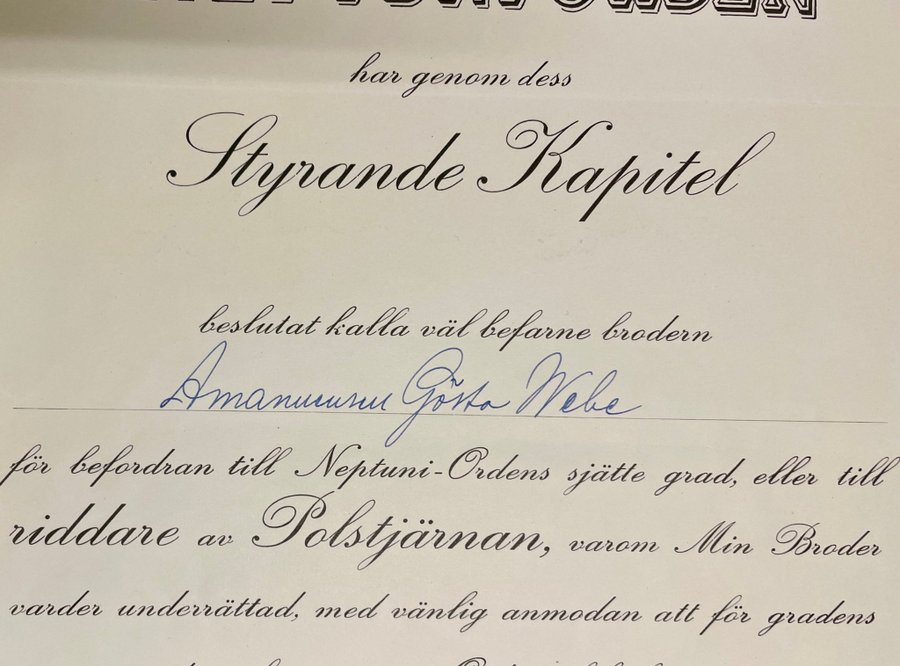 har genom dess
Styrande Kapitel
beslutat kalla väl befarne brodern
Amanuensen Gösta Webe
för befordran till Neptuni-Ordens sjätte grad, eller till
riddare av Polstjärnan, varom Min Broder
varder underrättad, med vänlig anmodan att för gradens